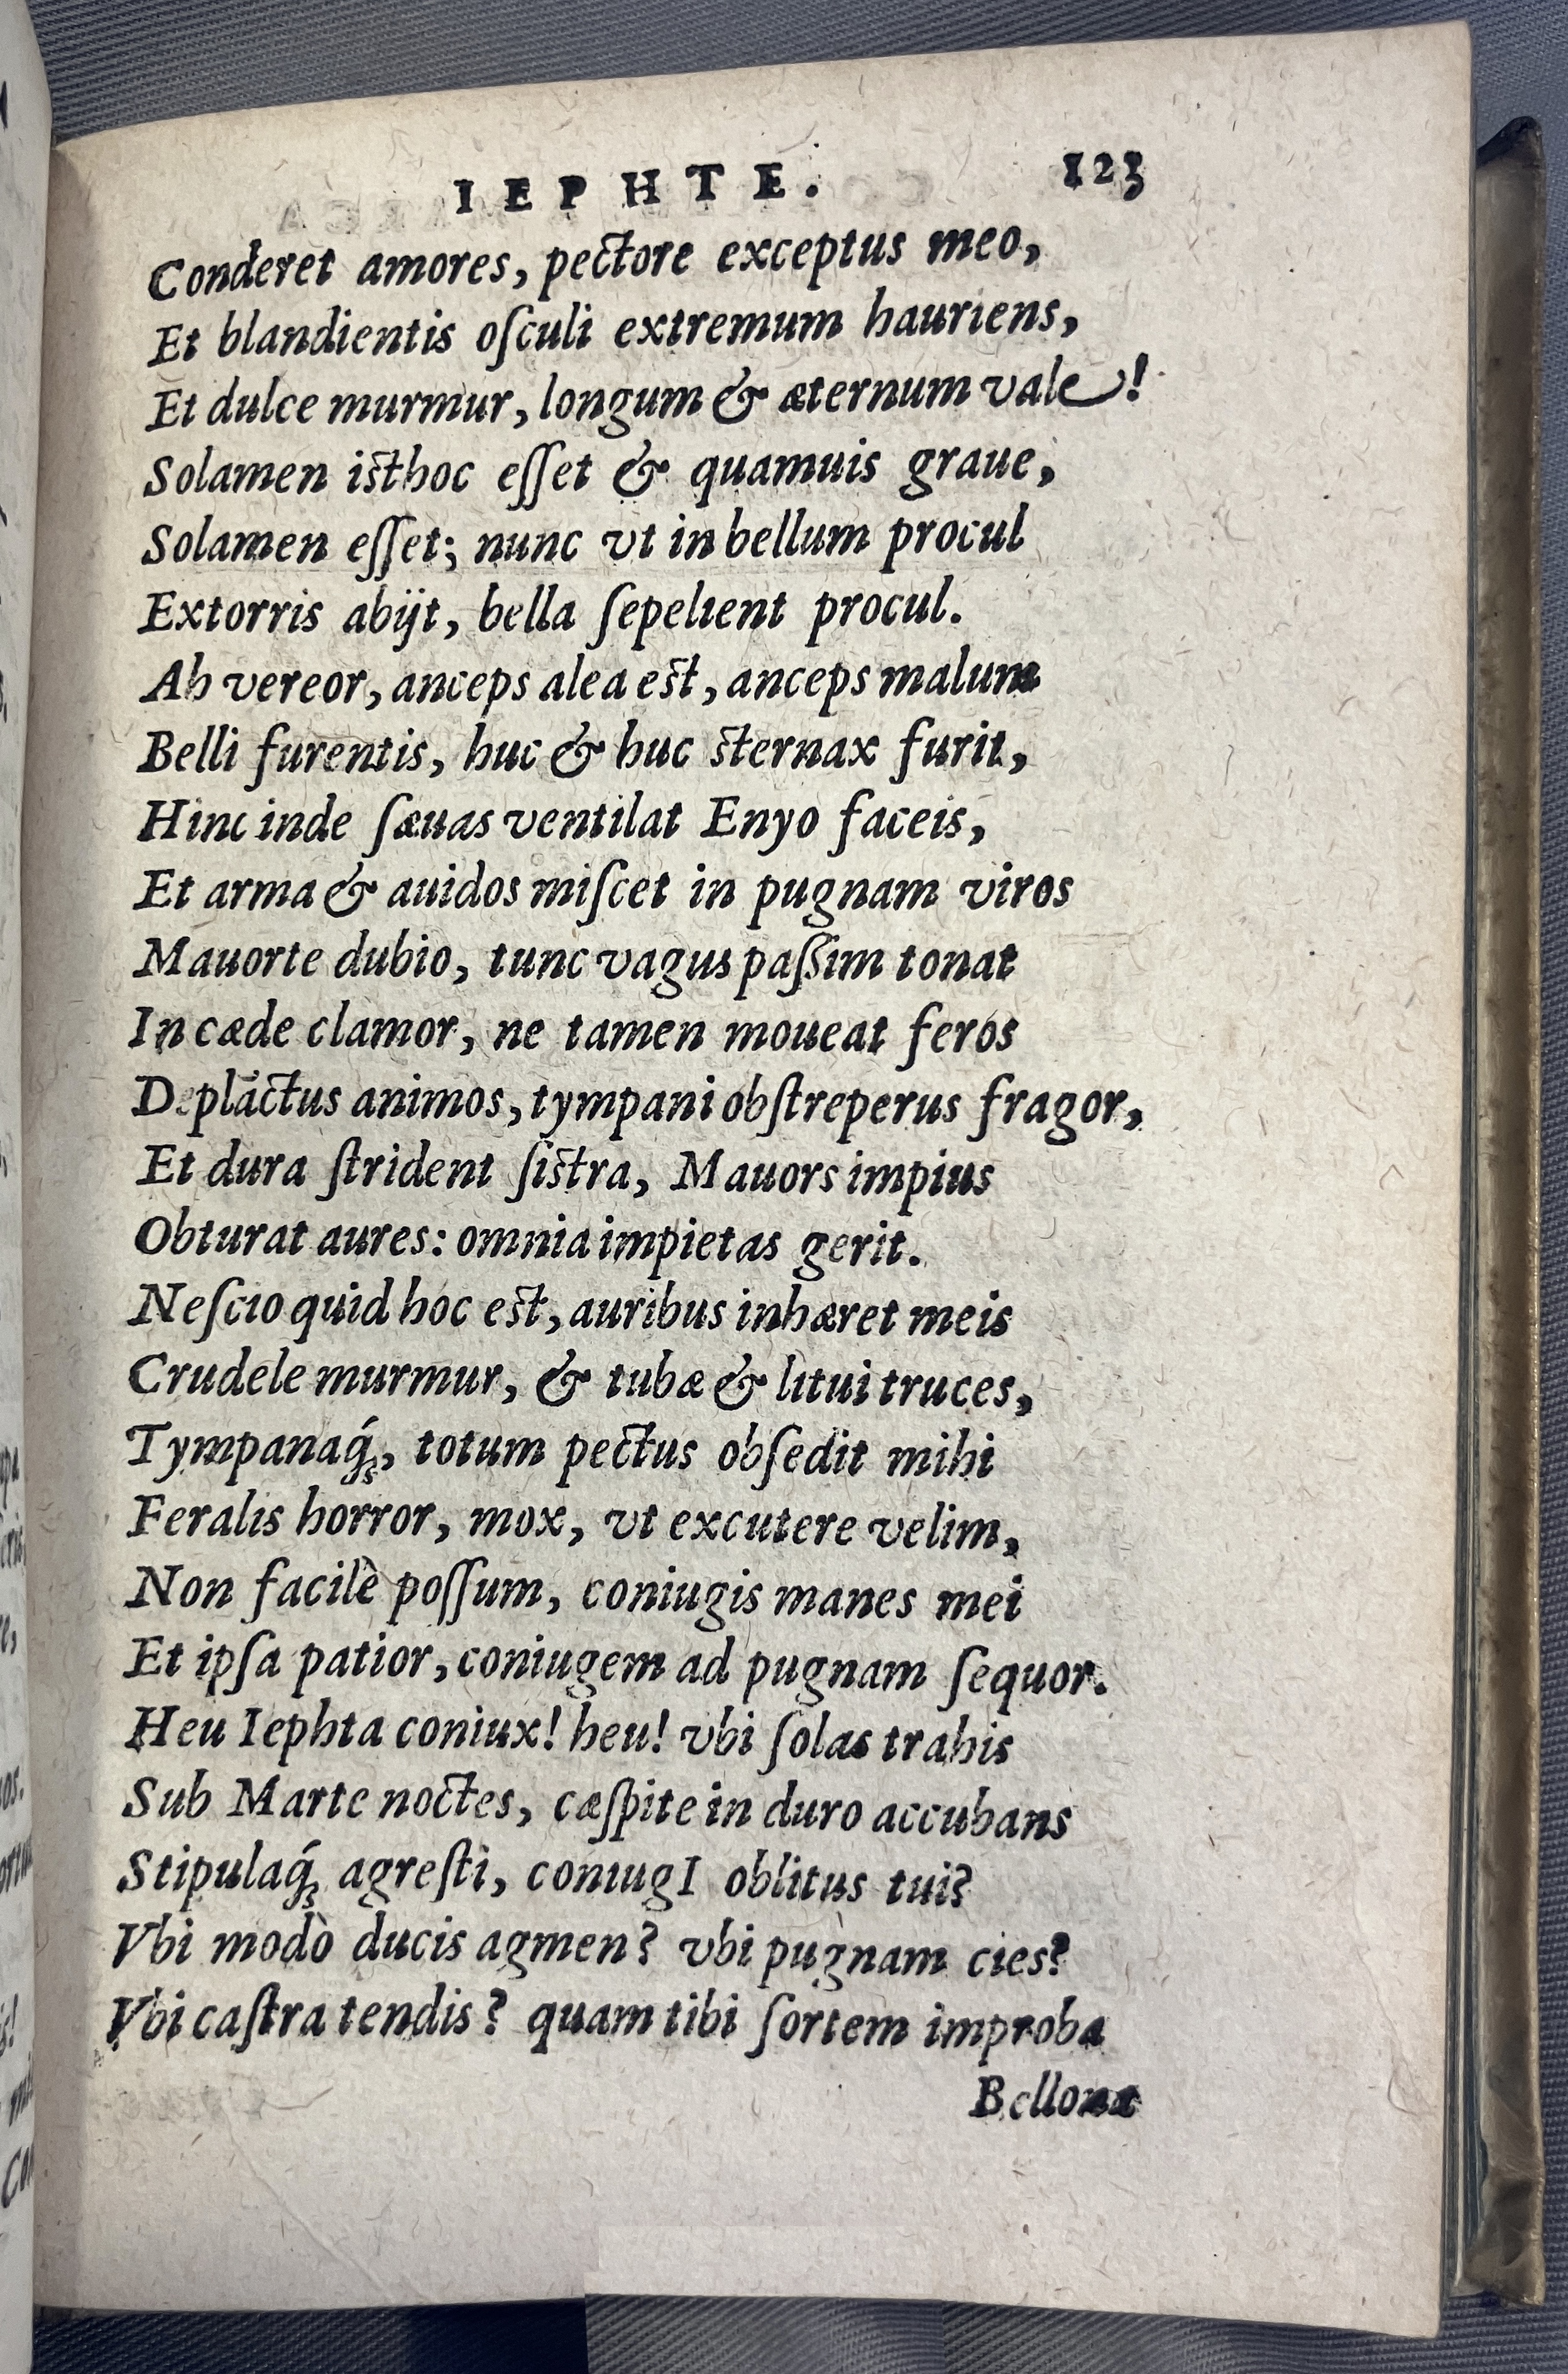 IEPHTE. 123
Conderet amores, pectore exceptus meo,
Et blandientis oſculi extremum hauriens,
Et dulce murmur, longum & æternum vale!
Solamen isthoc eſſet & quamuis graue,
Solamen eſſet; nunc vt in bellum procul
Extorris abijt, bella ſepelient procul.
Ah vereor, anceps alea est, anceps malum
Belli furentis, huc & huc sternax furit,
Hinc inde ſæuas ventilat Enyo faceis,
Et arma & auidos miſcet in pugnam viros
Mauorte dubio, tunc vagus paſsim tonat
In cæde clamor, ne tamen moueat feros
Deplāctus animos, tympani obſtreperus fragor,
Et dura ſtrident ſistra, Mauors impius
Obturat aures: omnia impietas gerit.
Neſcio quid hoc est, auribus inhæret meis
Crudele murmur, & tubæ & litui truces,
Tympanaq́ꝫ, totum pectus obſedit mihi
Feralis horror, mox, vt excutere velim,
Non facilè poſſum, coniugis manes mei
Et ipſa patior, coniugem ad pugnam ſequor.
Heu Iephta coniux! heu! vbi ſolas trahis
Sub Marte noctes, cæſpite in duro accubans
Stipulaq́ꝫ agreſti, coniugI oblitus tui?
Vbi modò ducis agmen? vbi pugnam cies?
Vbi caſtra tendis? quam tibi ſortem improba
Bellona